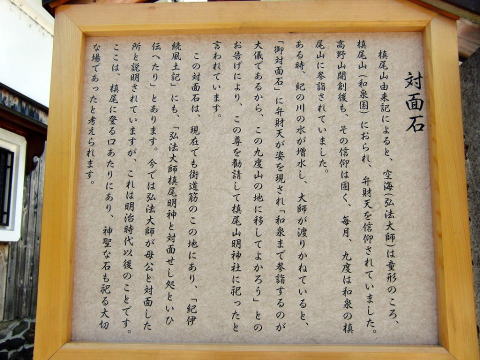 対面石
槙尾山由来記によると、空海(弘法大師)は童形のころ、
槙尾山(和泉国)におられ、弁財天を信仰されていました。
高野山開創後も、その信仰は固く、毎月、九度は和泉の槙
尾山に参詣されていました。
ある時、紀の川の水が増水し、大師が渡りかねていると、
「御対面石」に弁財天が姿を現され「和泉まで参詣するのが
大儀であるから、この九度山の地に移してよかろう」との
お告げにより、この尊を勧請して槙尾山明神社に祀ったと
言われています。
この対面石は、現在でも街道筋のこの地にあり、「紀伊
続風土記」にも、「弘法大師槙尾明神と対面せし処といひ
伝へたり」とあります。今では弘法大師が母公と対面した
所と説明されていますが、これは明治時代以後のことです。
ここは、槙尾に登る口あたりにあり、神聖な石も祀る大切
な場であったと考えられます。